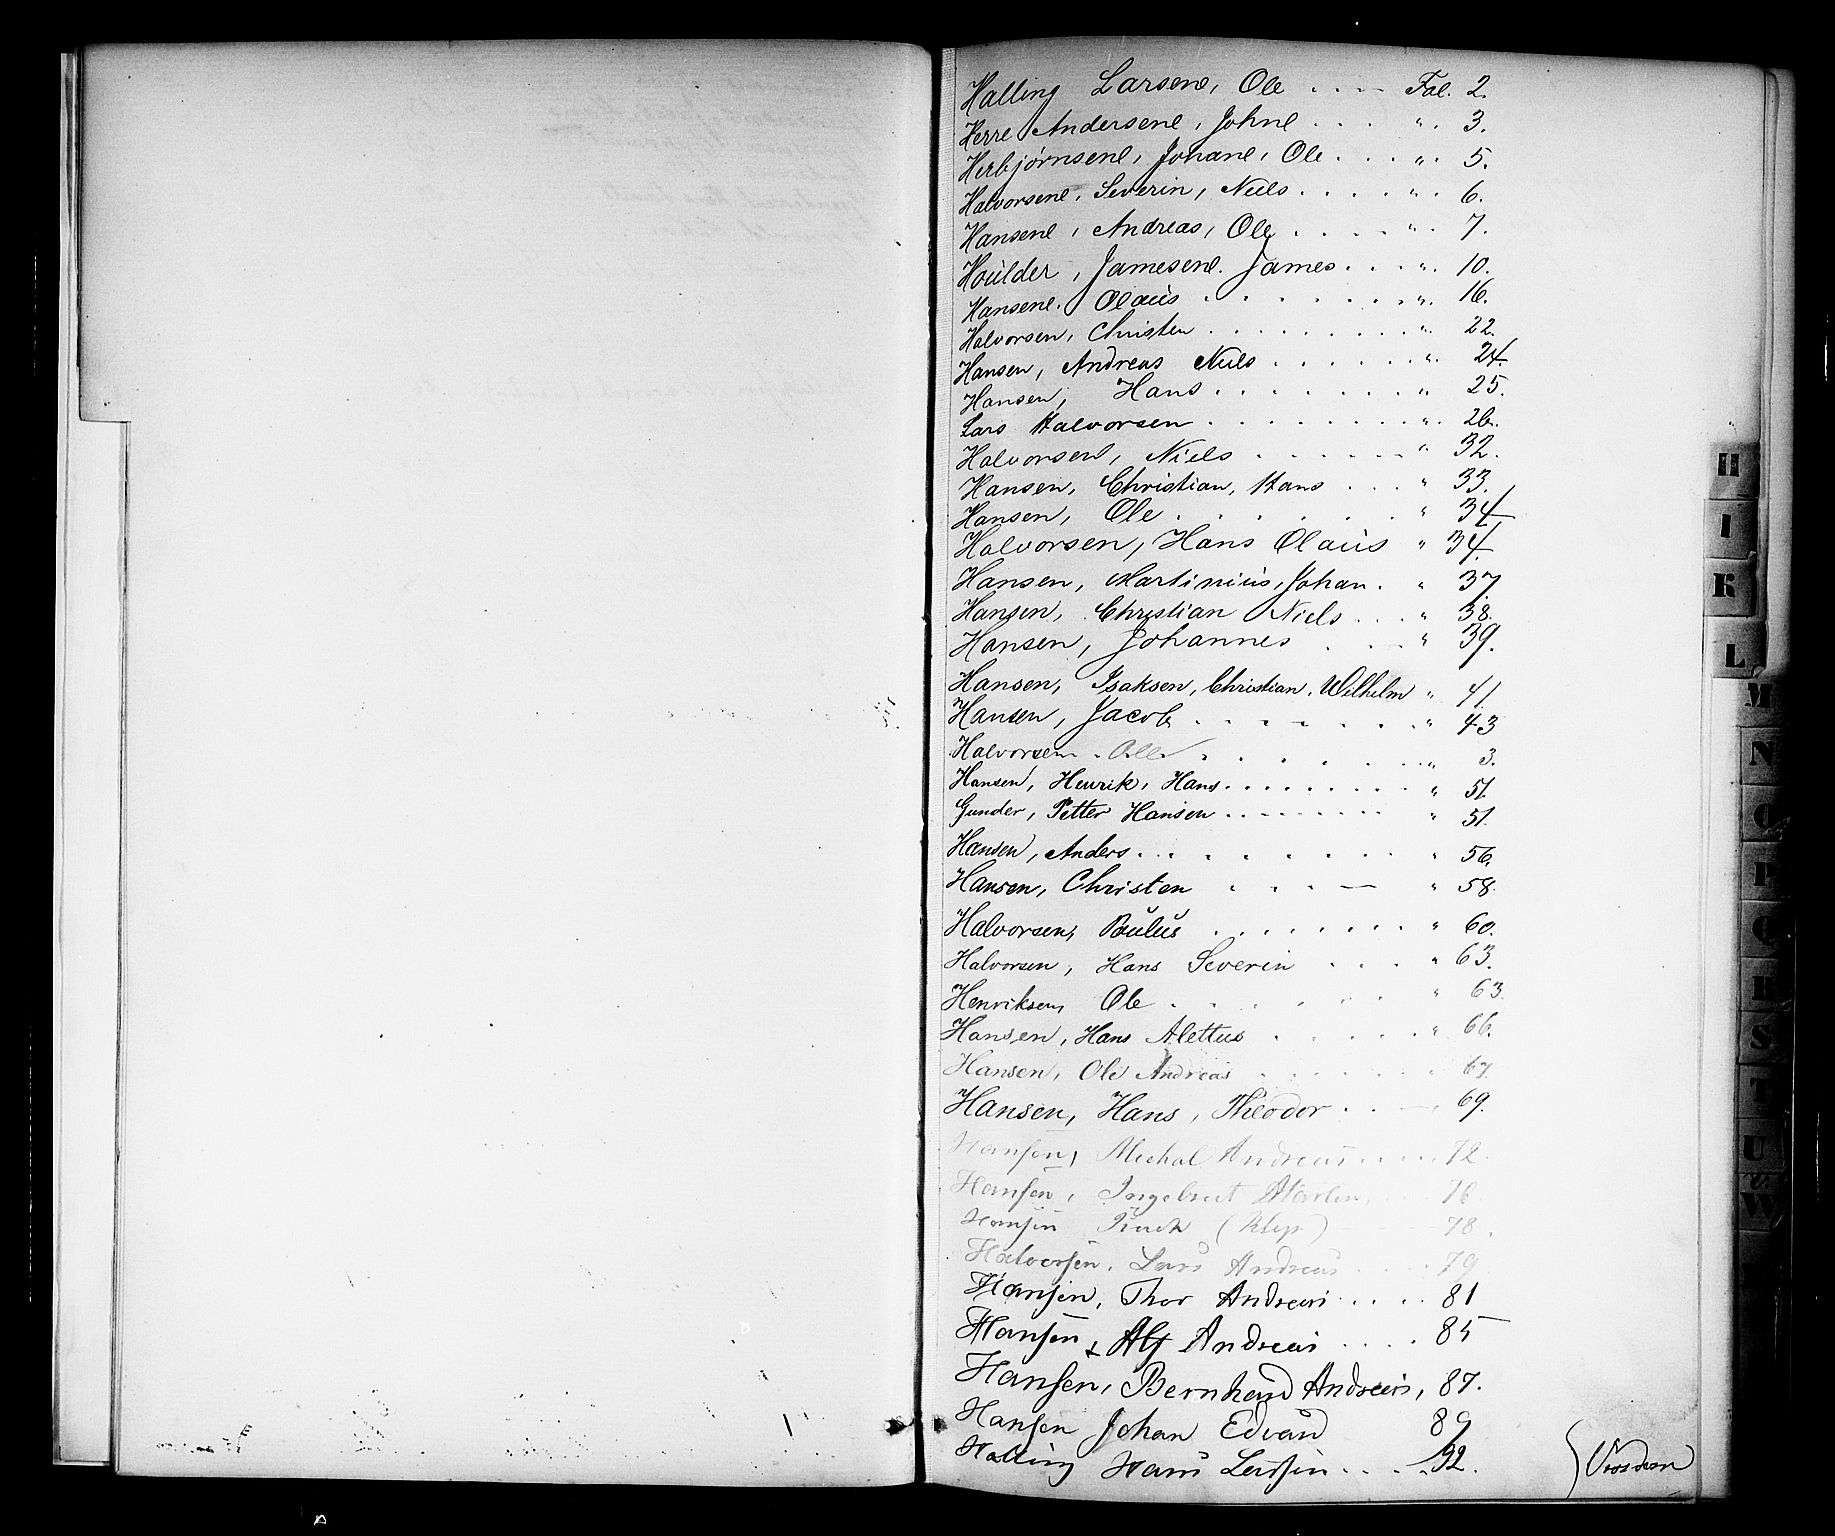 Halling Larsene, Ole . . . . Fol. 2.
Herre Andersene, Johne . . . . " . 3.
Herbjørnsene, Johane, Ole . . . . " . 5.
Halvorsene, Severin, Niels . . . . . " . 6.
Hansene, Andreas, Ole . . . . . " . 7.
Houlder, Jamesene. James . . . " . 10.
Hansene. Olaus . . . . . . . " . 16.
Halvorsen, Christen . . . . . . . . . " . 22.
Hansen, Andreas Niels . . . . . . " . 24.
Hansen, Hans . . . . . . . . " 25.
Lars Halvorsen . . . . . . . . . " . 26.
Halvorsen, Niels . . . . . . . " 32.
Hansen, Christian, Hans . . . " 33.
Hansen, Ole . . . . . . " 34
Halvorsen, Hans Olaus " 34.
Hansen, Martinius, Johan . " 37
Hansen, Christian Niels . . . " 38.
Hansen, Johannes . . . " 39.
Hansen, Isaksen, Christian, Wilhelm " 41
Hansen, Jacob . . . . . . . " 43
Halvorsen . Ole . . . . . . " 3.
Hansen, Henrik, Hans . . . . . . . . . " 51.
Gunder, Petter Hansen . . . . . . . . " 51.
Hansen, Anders . . . . . . . . " 56.
Hansen, Christen . . . . — " 58.
Halvorsen, Paulus . . . . . . . . " 60.
Halvorsen, Hans Severin . . . . " 63.
Henriksen, Ole . . . . . . . " 63.
Hansen, Hans Alettus . . . . . " 66.
Hansen, Ole Andreas . . . . . " 67
Hansen, Hans, Theodor . . . 69.
Hansen, Michal Andreas . . . . . 72.
Hansen, Ingebret Martin, . . . 76
Hansen (Klep) - - - - 78.
Halvorsen, Lars Andreas . . . . 79
Hansen, Thor Andreas . . . . 81
Hansen, Alf Andreas . . . . 85
Hansen, Bernhard Andreas, 87.
Hansen Johan Edvard 89
Halling Hans Larsen . . . . . 92.
H
I
K
L
M
N
O
P
Q
R
S
T
U
V
W